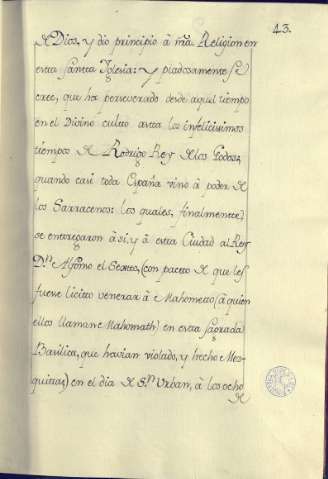 43.
de Dios, y dió principio à nrâ. Religion en
esta Santta Yglesia: y piadosamente se
cree, que ha perseverado desde aquel tiempo
en el Divino culto asta los infelicisimos
tiempos de Rodrigo Rey de los Godos,
quando casi toda España vino à poder de
los Sarracenos: los quales, finalmente
se entregaron à si, y à esta Ciudad al Rey
Dn. Alfonso el Sexto, (con pacto de que les
fuese licito venerar à Mahometto (à quien
ellos llaman Mahomath) en esta Sagrada
Basilica, que havian violado, y hecho Mez-
quitta) en el dia de Sn. Urban, à los ocho
de